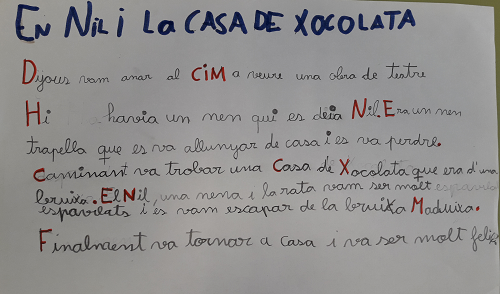 EN NIL I LA CASA DE XOCOLATA
Dijous vam anar al CIM a veure una obra de teatre
Hi havia un nen qui es deia Nil. Era un nen
trapella que es va allunyar de casa i es va perdre.
Caminant va trobar una Casa de Xocolata que era d'una
bruixa. El Nil, una nena i la rata vam ser molt espavilats
espavilats i es vam escapar de la bruixa Maduixa.
Finalment va tornar a casa i va ser molt feliç